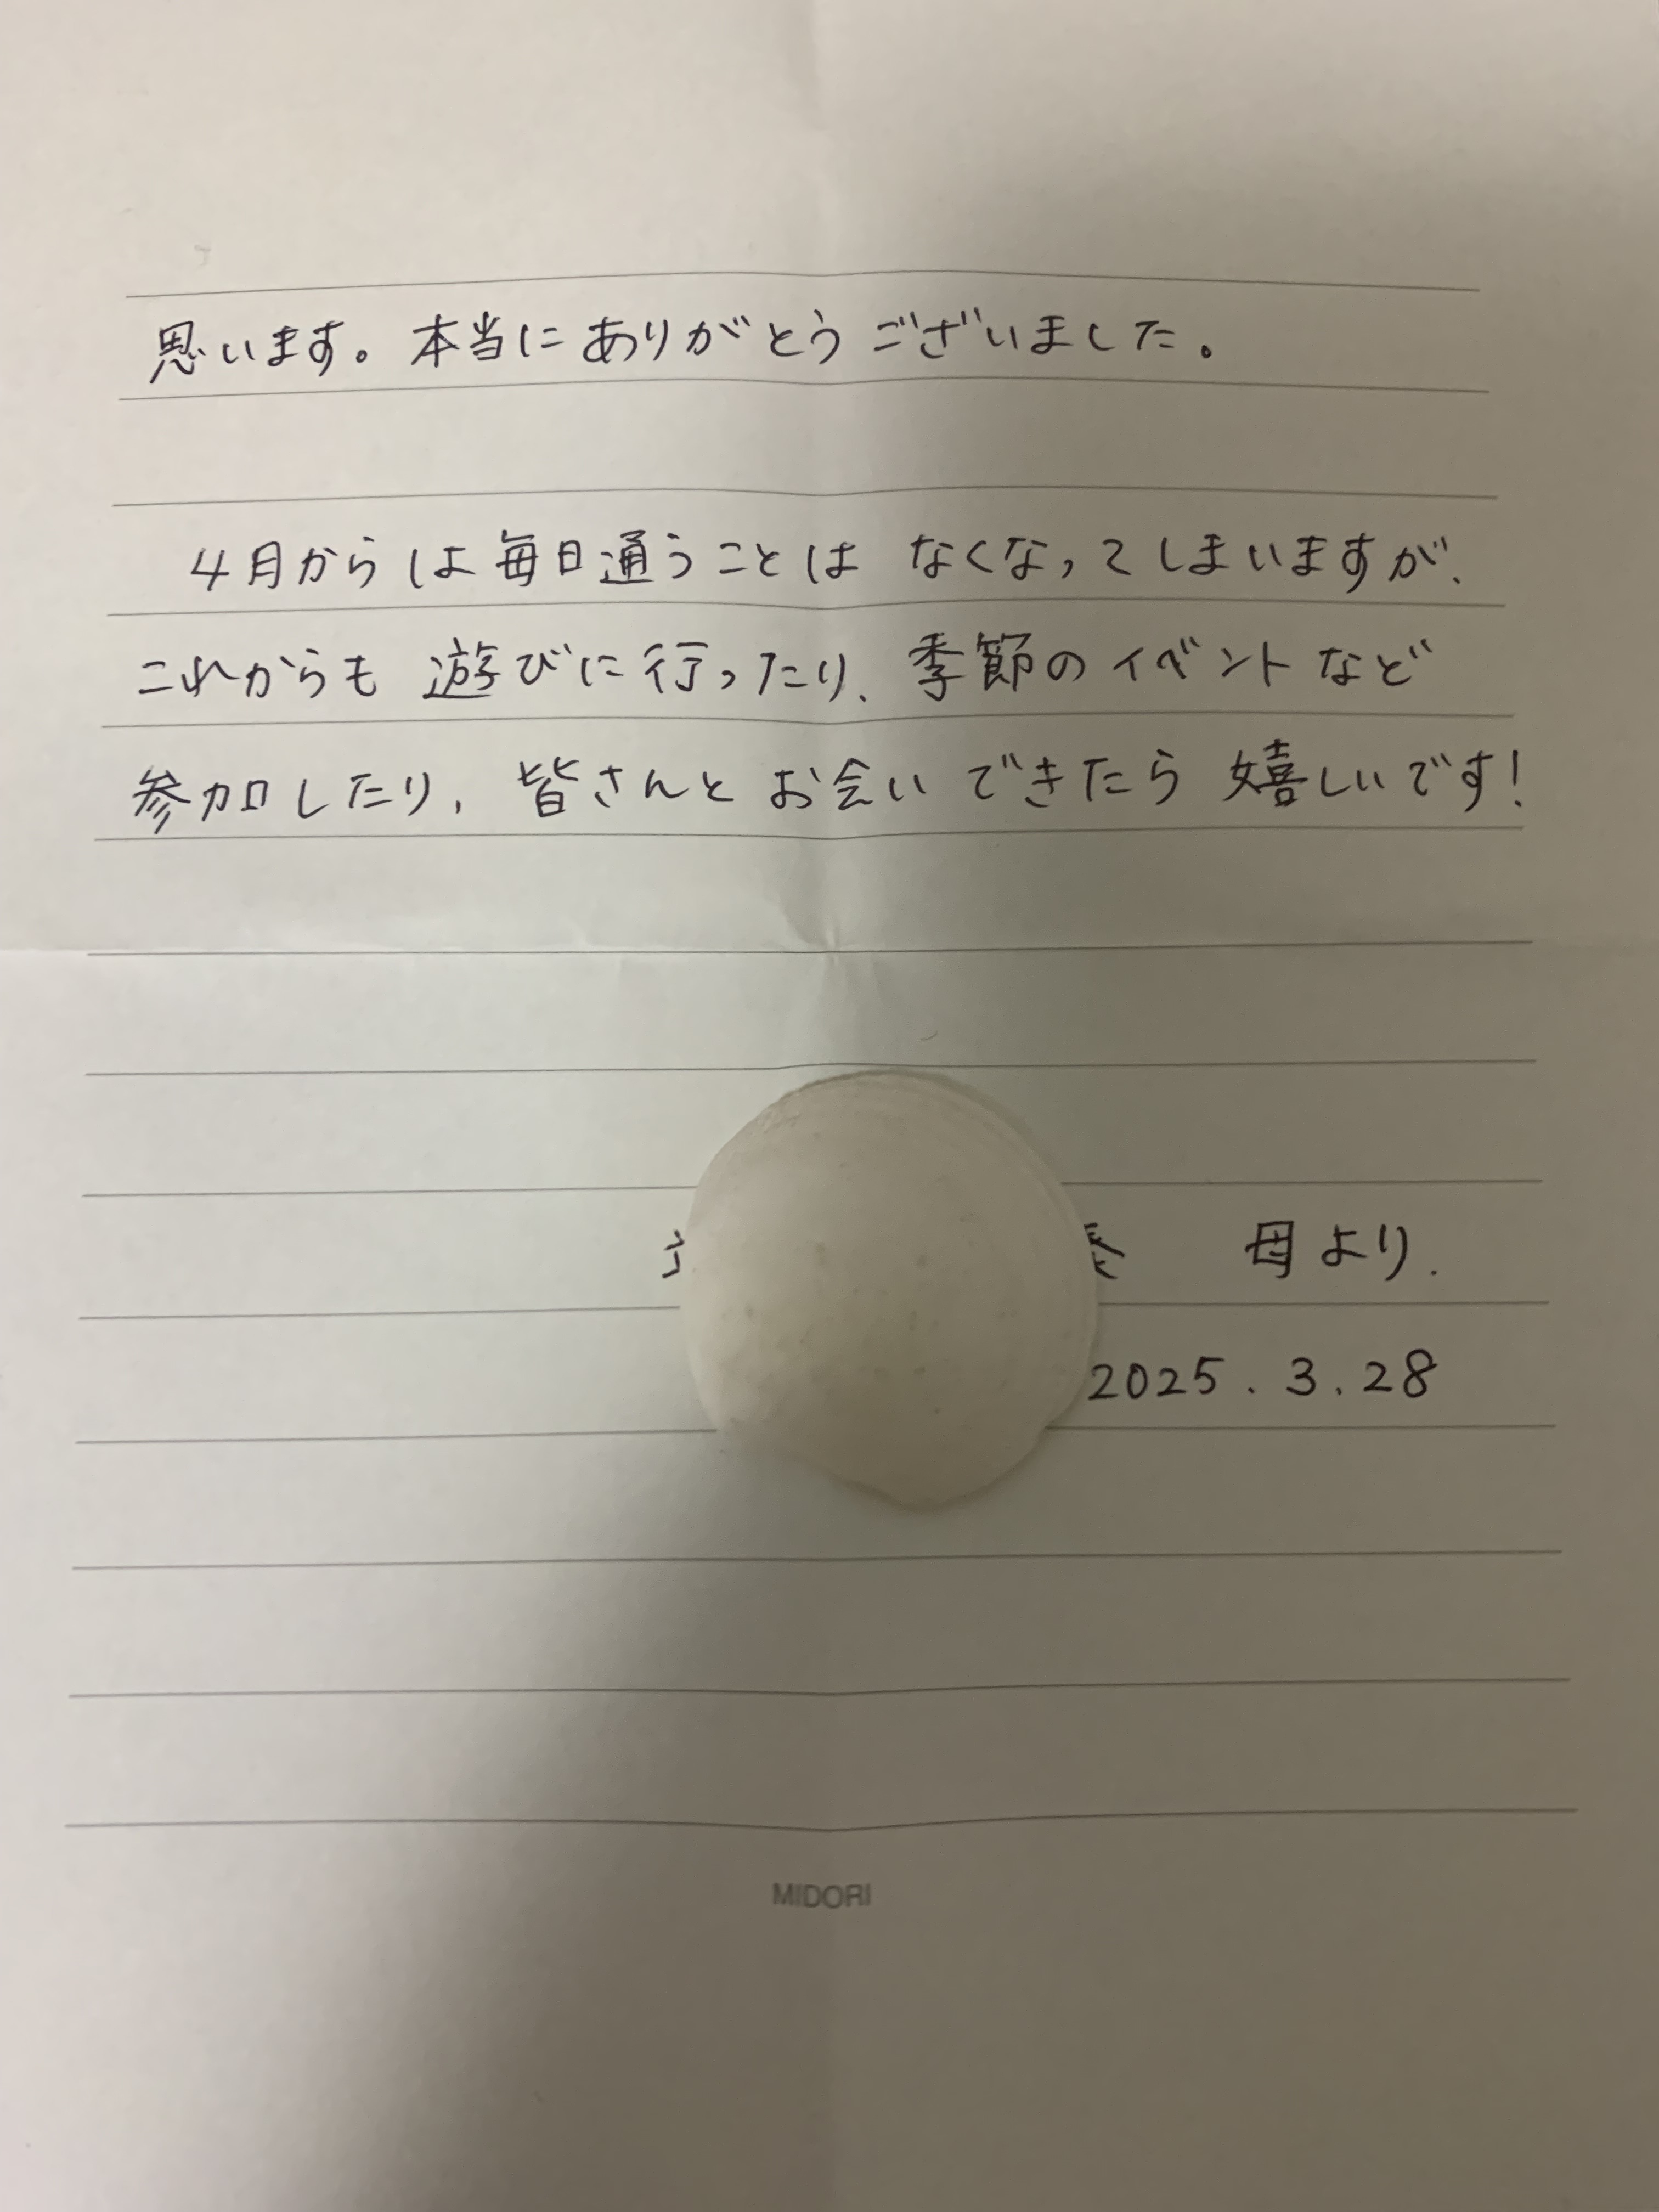 思います。本当にありがとうございました。
4月からは毎日通うことはなくなってしまいますが、
これからも遊びに行ったり、季節のイベントなど
参加したり、皆さんとお会いできたら嬉しいです!
母より.
2025.3.28
MIDORI